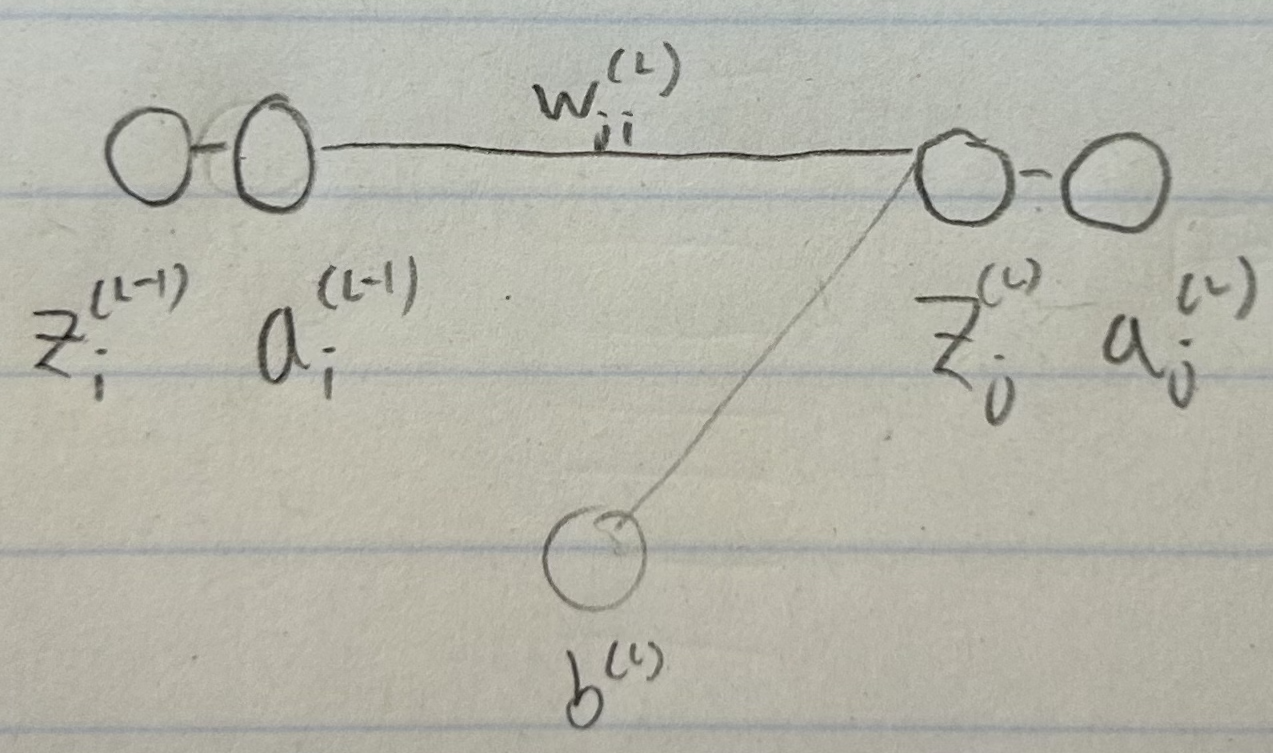 w_{ji}^{(L)}
z_i^{(L-1)} a_i^{(L-1)} z_j^{(L)} a_j^{(L)}
b^{(L)}